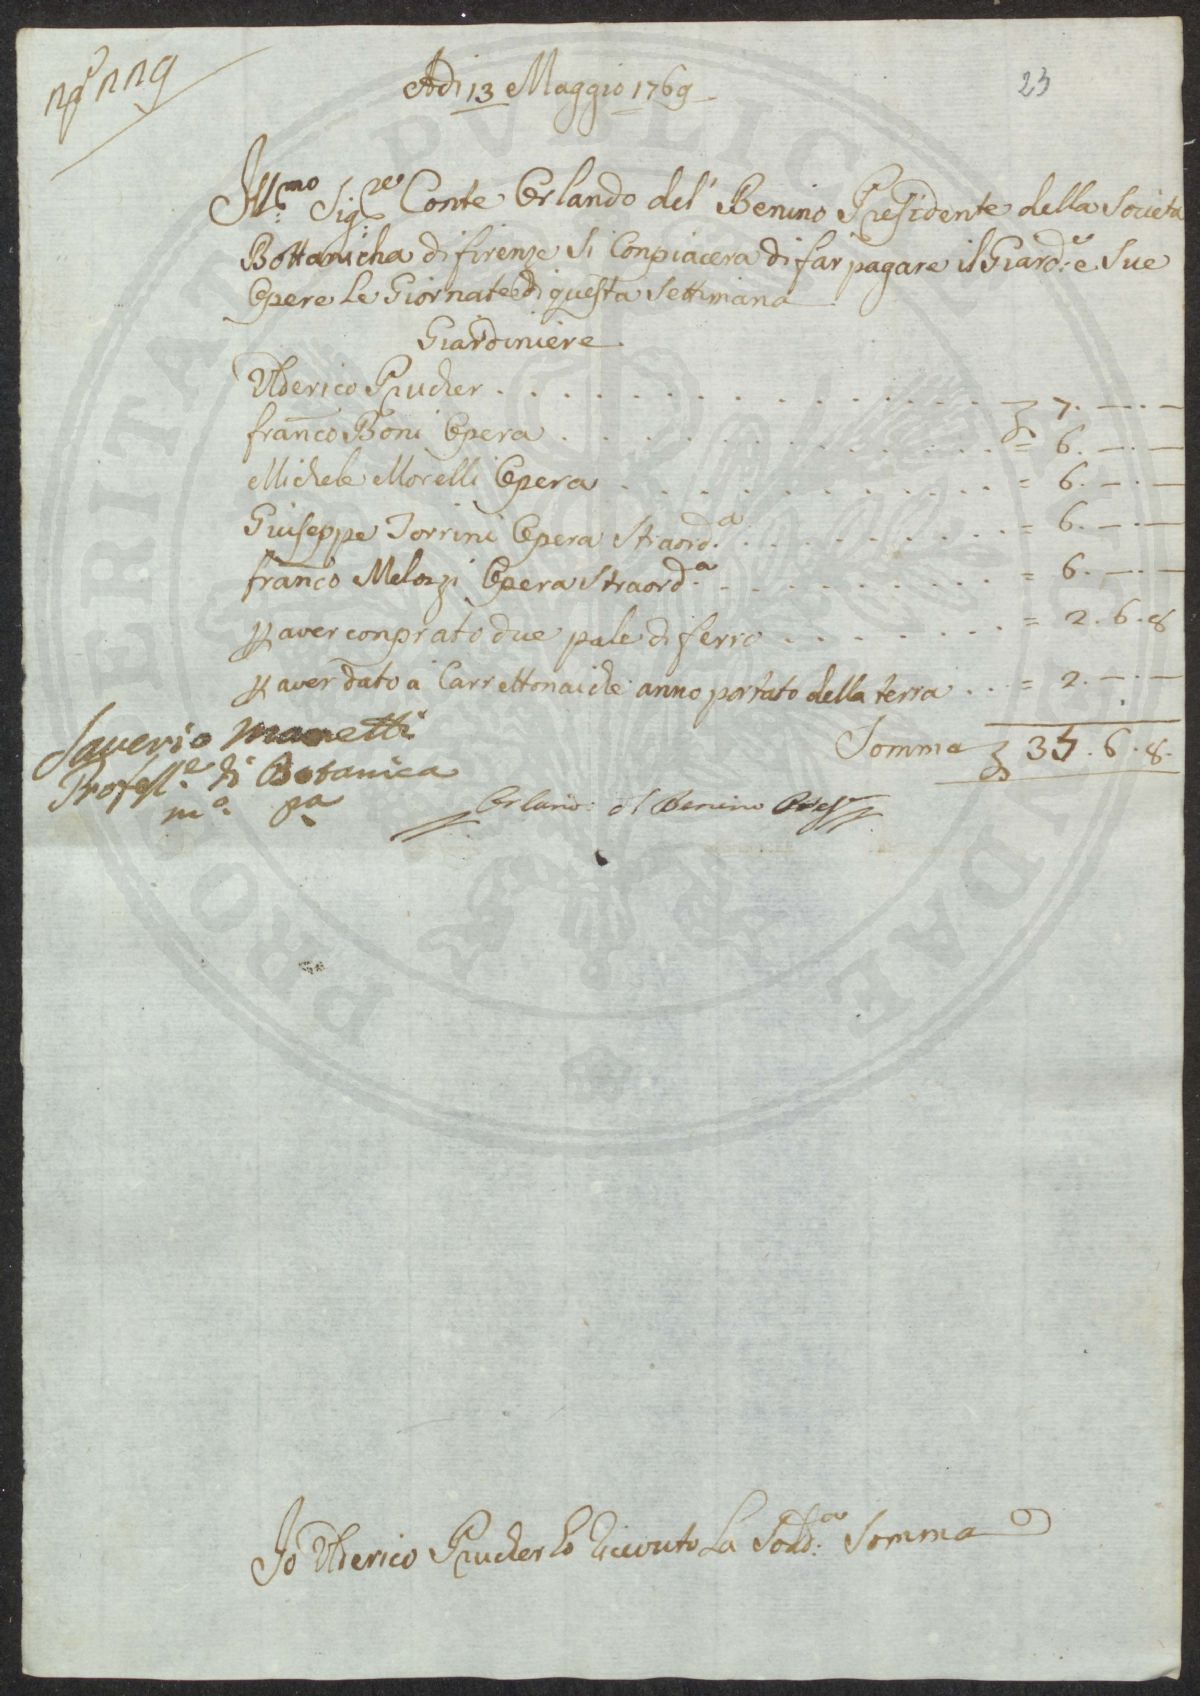 Adi 13 Maggio 1769
23
Ill:mo Sig:re Conte Orlando del' Benino Presidente della Società
Bottanicha di firenze Si Conpiacera di far pagare il Giard:e e Sue
Opere le Giornate di questa Settimana
Giardiniere
Ulderico Prucher . . . . . . . . . . . . . . £ 7. — . —
franco Boni Opera . . . . . . . . . . . . = 6. — . —
Michele Morelli Opera . . . . . . . . . . = 6. — . —
Giuseppe Torrini Opera Straord:a . . . . . . . . = 6. — . —
franco Melozzi Opera Straord:a . . . . . . . . = 6. — . —
P aver conprato due pale di ferro . . . . . . . = 2. 6. 8
P aver dato a Carrettonai che anno portato della terra . . . = 2. — . —
Somma £ 35. 6. 8.
Saverio Manetti
Profess:e di Botanica
m:o p:a
Orlando: del Benino Pres:
Io Ulderico Prucher ho Riceuto La Sodd:a Somma
PROSPERITATI PVBLICAE AVGENDAE